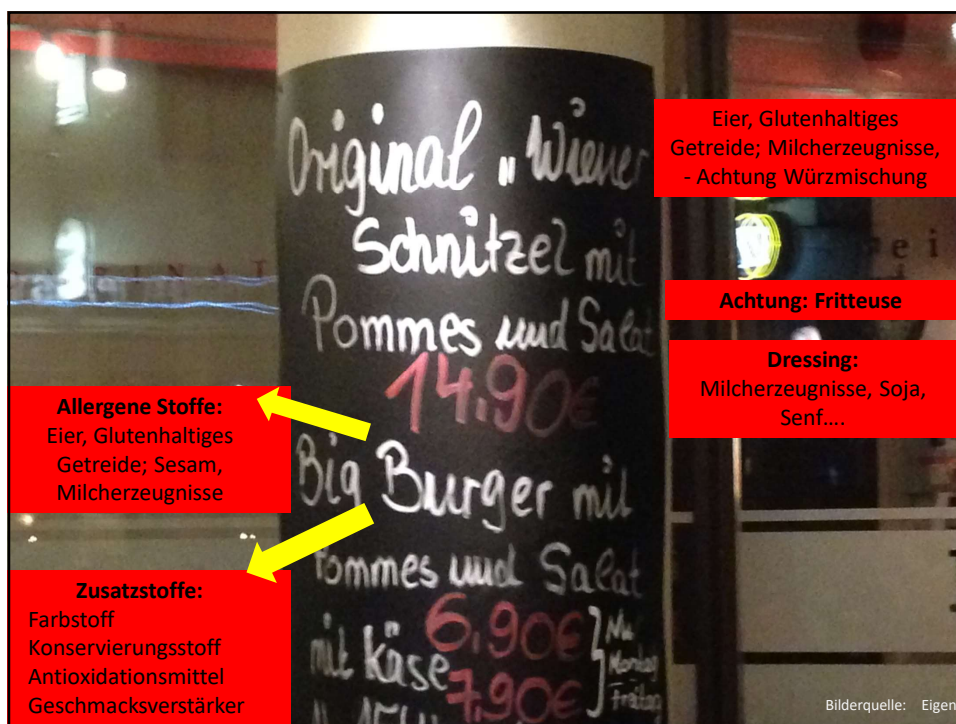 Original „Wiener
Schnitzel mit
Pommes und Salat
14.90€
Big Burger mit
Pommes und Salat
mit Käse
6.90€
7.90€
Montag
Freitag
Eier, Glutenhaltiges
Getreide; Milcherzeugnisse,
- Achtung Würzmischung
Achtung: Fritteuse
Dressing:
Milcherzeugnisse, Soja,
Senf....
Allergene Stoffe:
Eier, Glutenhaltiges
Getreide; Sesam,
Milcherzeugnisse
Zusatzstoffe:
Farbstoff
Konservierungsstoff
Antioxidationsmittel
Geschmacksverstärker
Bilderquelle: Eigen